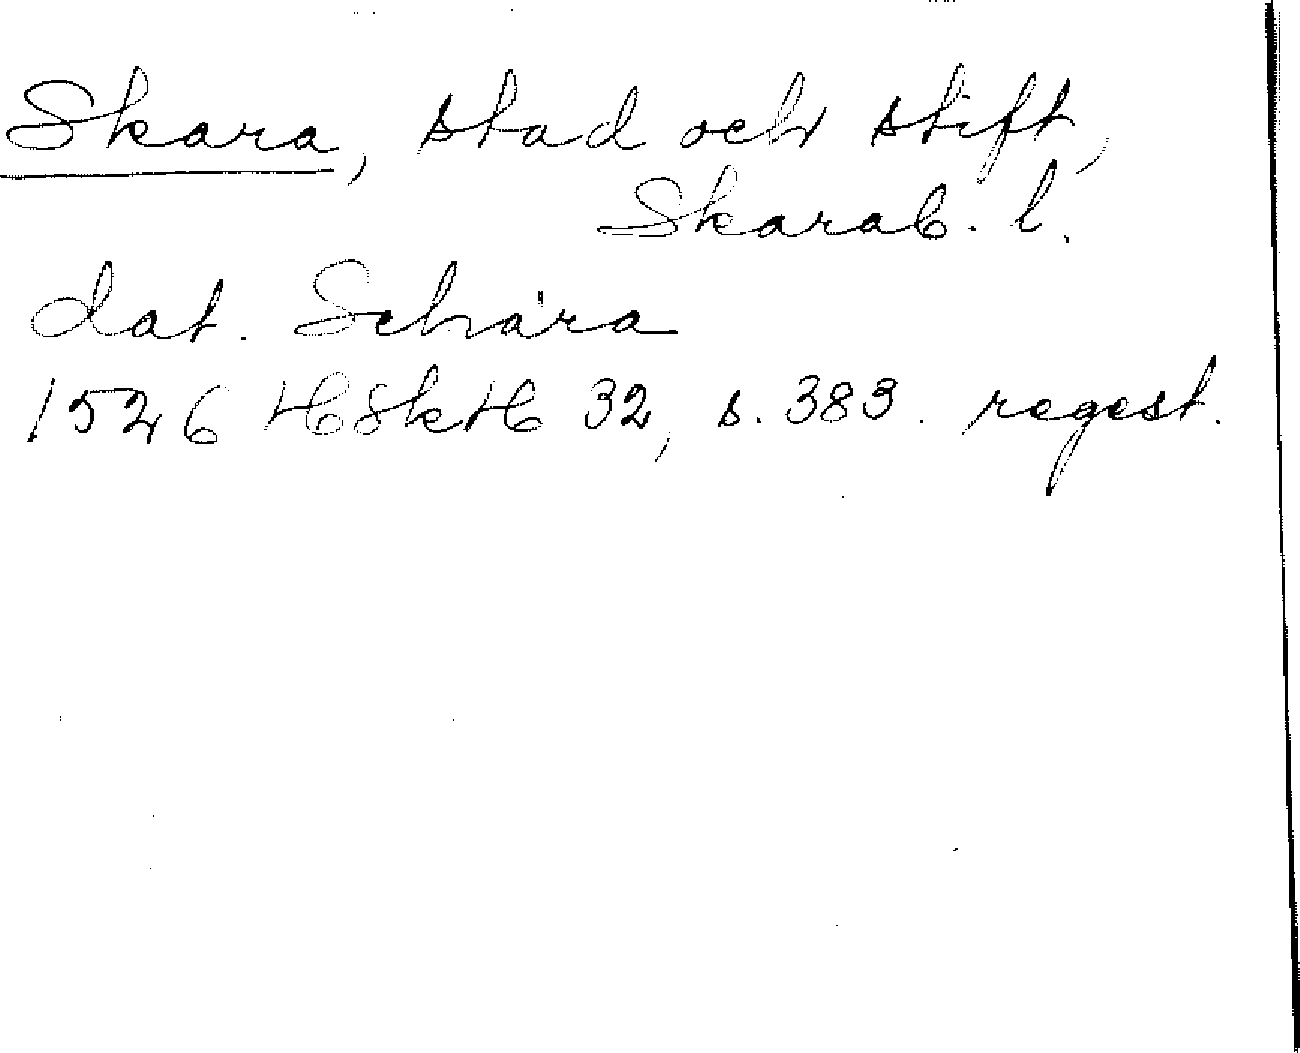 Skara, stad och stift,
Skarab. l.
dat. Schára
1526 HSkH 32, s. 383. regest.